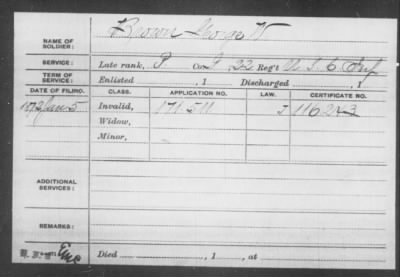 NAME OF SOLDIER: Brown George W
SERVICE: Late rank, P Co. I 22 Reg't U. S. C. Inf
TERM OF SERVICE: Enlisted , 1 Discharged , 1
DATE OF FILING. CLASS. APPLICATION NO. LAW. CERTIFICATE NO.
1872 Jan 5 Invalid, 171511 116243
Widow,
Minor,
ADDITIONAL SERVICES:
REMARKS:
Died , 1 , at